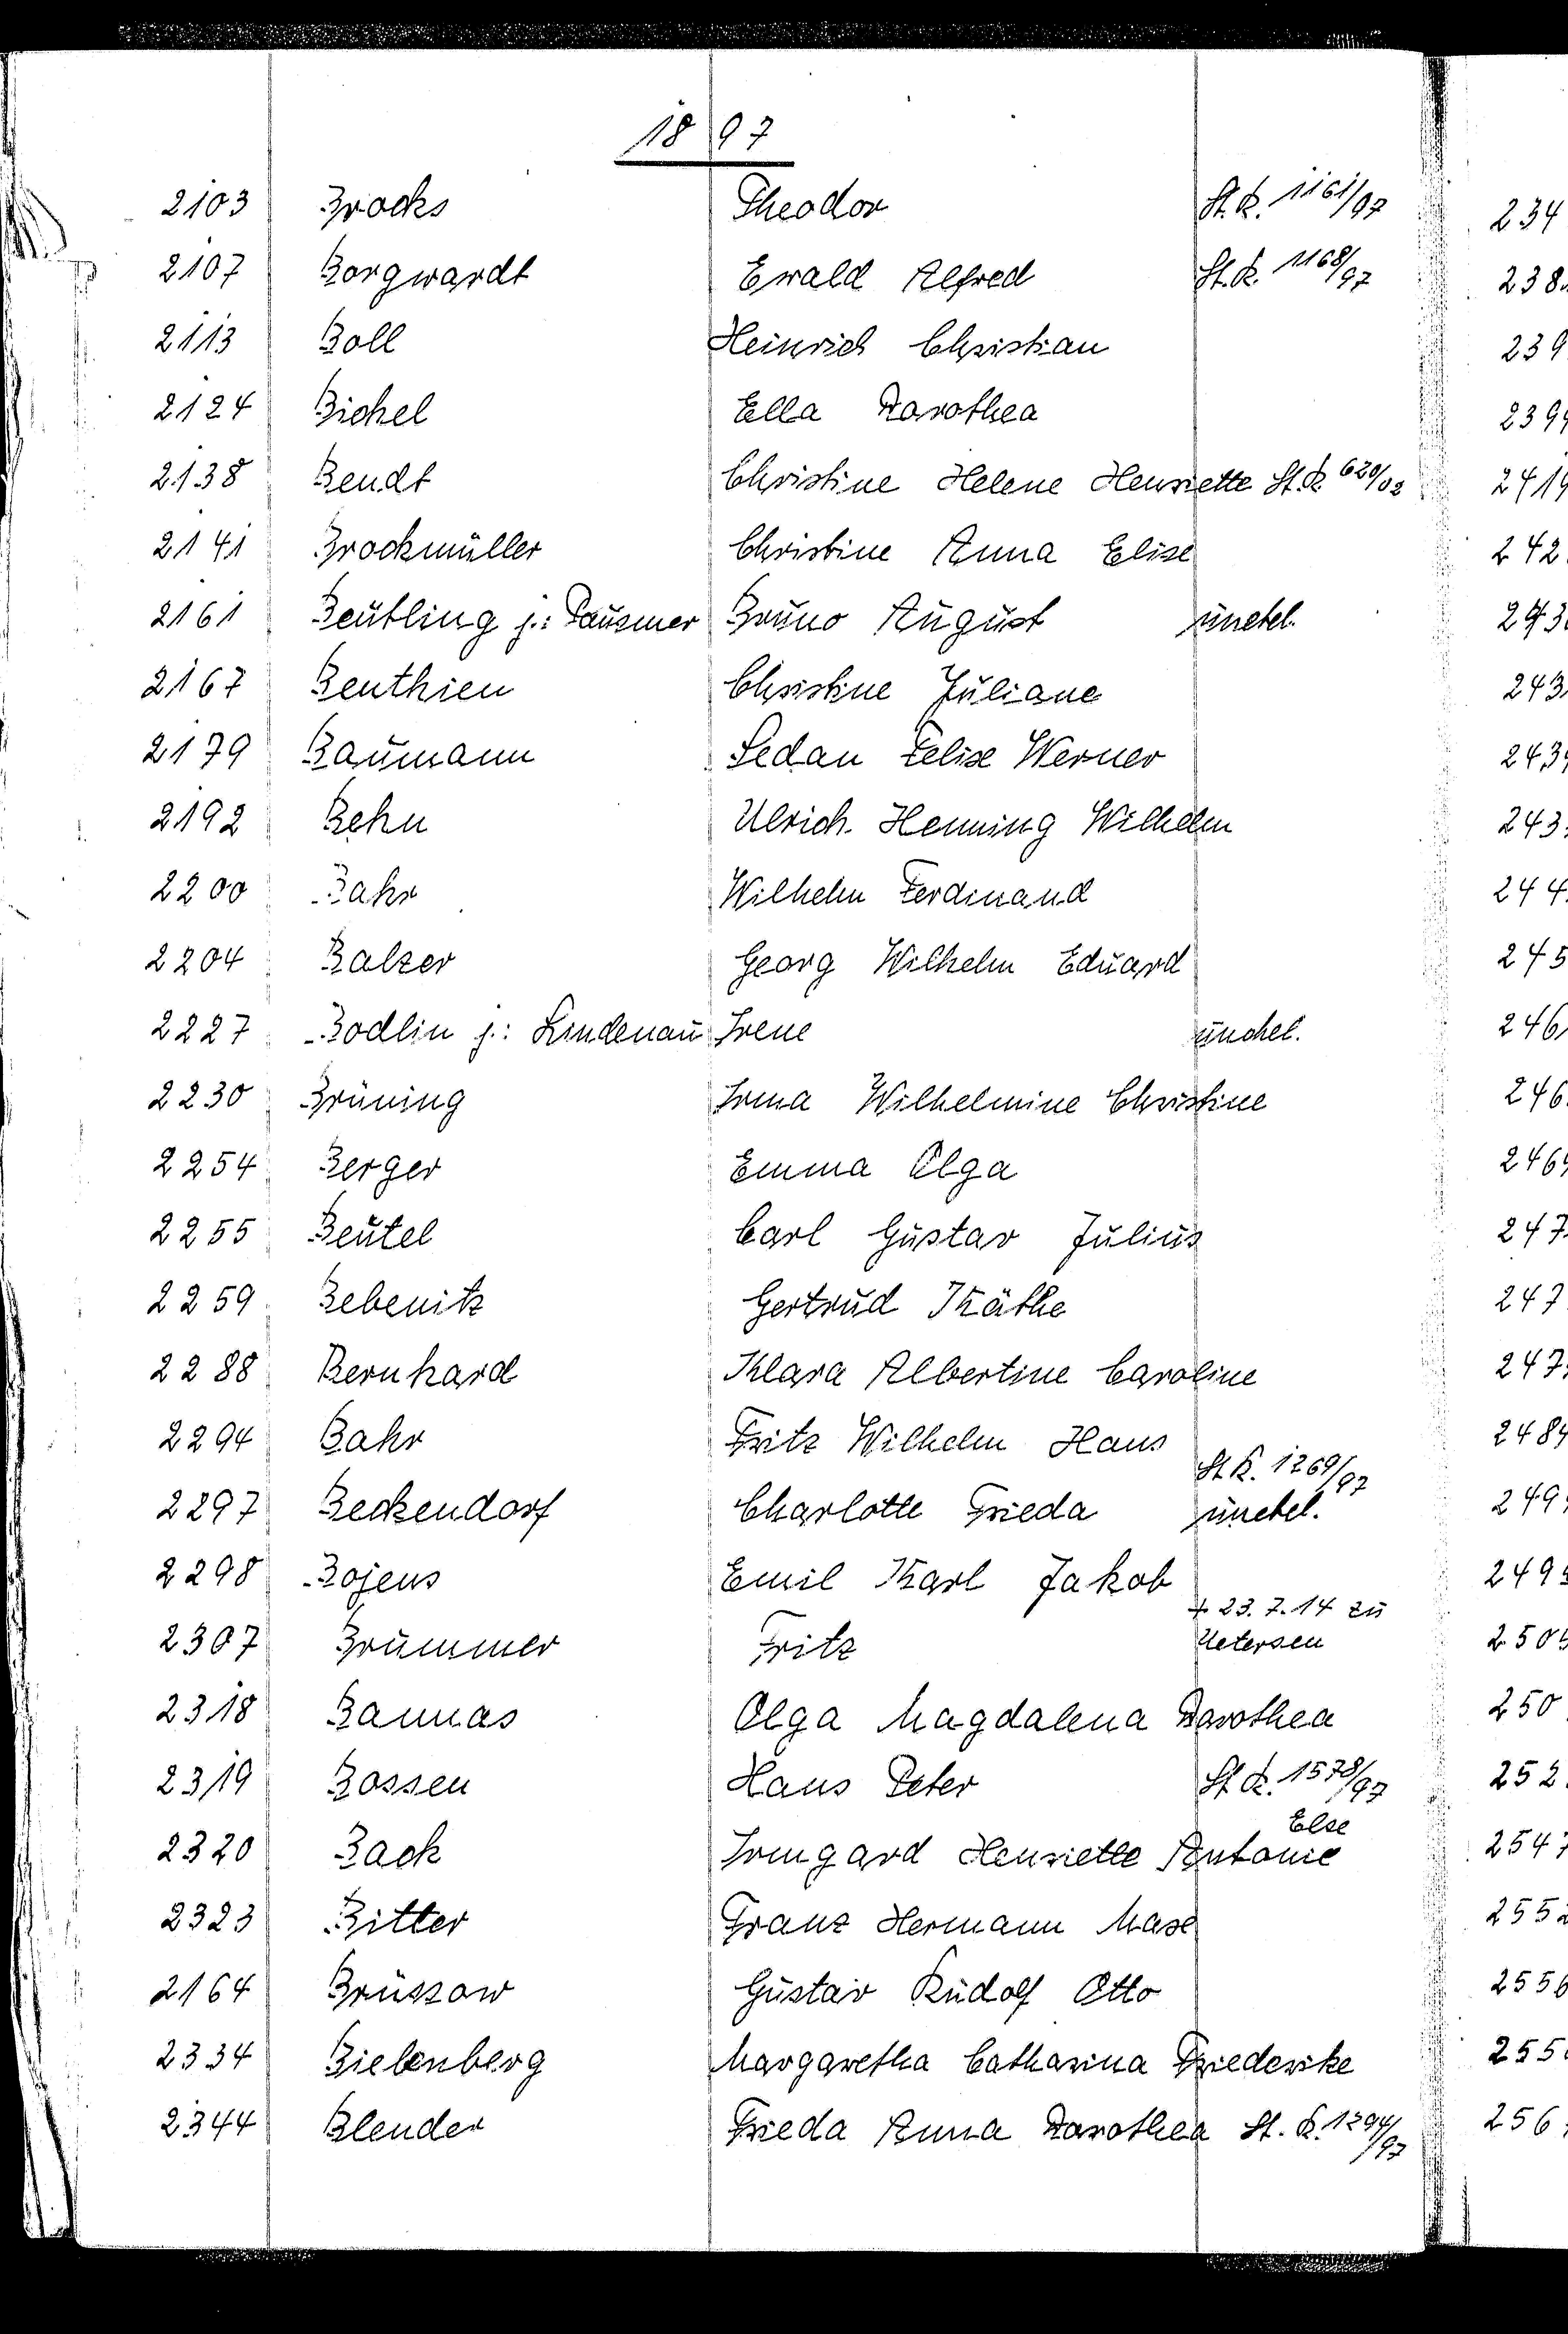 1897
2103 Brocks Theodor St. R. 1161/97
2107 Borgwardt Ewald Alfred St. R. 1168/97
2113 Boll Heinrich Christian
2124 Bichel Ella Dorothea
2138 Bendt Christine Helene Henriette St. R. 620/02
2141 Brockmüller Christine Anna Elise
2161 Beutling j.: Pausmer Bruno August unehel.
2167 Benthien Christine Juliane
2179 Baumann Sedan Felix Werner
2192 Behn Ulrich Henning Wilhelm
2200 Bahr Wilhelm Ferdinand
2204 Balzer Georg Wilhelm Eduard
2227 Bodlin j.: Lindenau Irene unehel.
2230 Brüning Irma Wilhelmine Christine
2254 Berger Emma Olga
2255 Beutel Carl Gustav Julius
2259 Bebenitz Gertrud Käthe
2288 Bernhard Klara Albertine Caroline
2294 Bahr Fritz Wilhelm Hans
St. R. 1269/97
2297 Beckendorf Charlotte Frieda unehel.
2298 Bojens Emil Karl Jakob
+ 23.7.14 zu
2307 Brummer Fritz Uetersen
2318 Bannas Olga Magdalena Dorothea
2319 Bossen Hans Peter St. R. 1578/97
Else
2320 Back Irmgard Henriette Antonie
2323 Bitter Franz Hermann Max
2164 Brüssow Gustav Rudolf Otto
2334 Bielenberg Margaretha Catharina Friederike
2344 Blender Frieda Anna Dorothea St. R. 1294/97
234
238
239
239
2419
242
243
243
243
243
244
245
246
246
246
247
247
247
248
249
249
250
250
252
2547
2552
2556
255
256